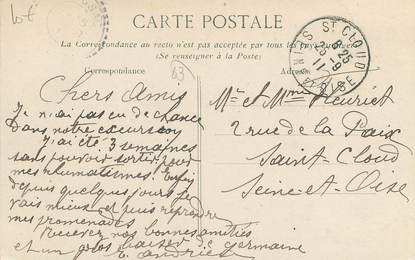 lot
CARTE POSTALE
La Correspondance au recto n'est pas acceptée par tous les pays étrangers
(Se renseigner à la Poste)
Correspondance
63
Adresse
ST CLOUD
25
25 - 9
11
SEINE-ET-OISE
Chers Amis
Je n'ai pas eu de chance
Dans notre excursion
j'ai été 3 semaines
sans pouvoir sortir pour
mes rhumatismes! Enfin
depuis quelques jours je
vais mieux et puis reprendre
mes promenades
Recevez nos bonnes amitiés
et un gros baiser à Germaine
Mr et Mme Fleuriet
2 rue de la Paix
Saint-Cloud
Seine-et-Oise